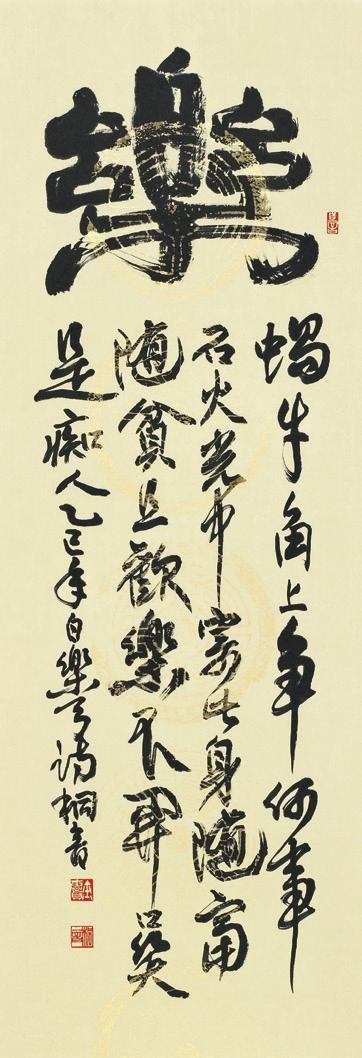 樂
蝸牛角上争何事
石火光中寄此身随富
随貧且歡樂不開口笑
是痴人乙巳年白樂天詩桐